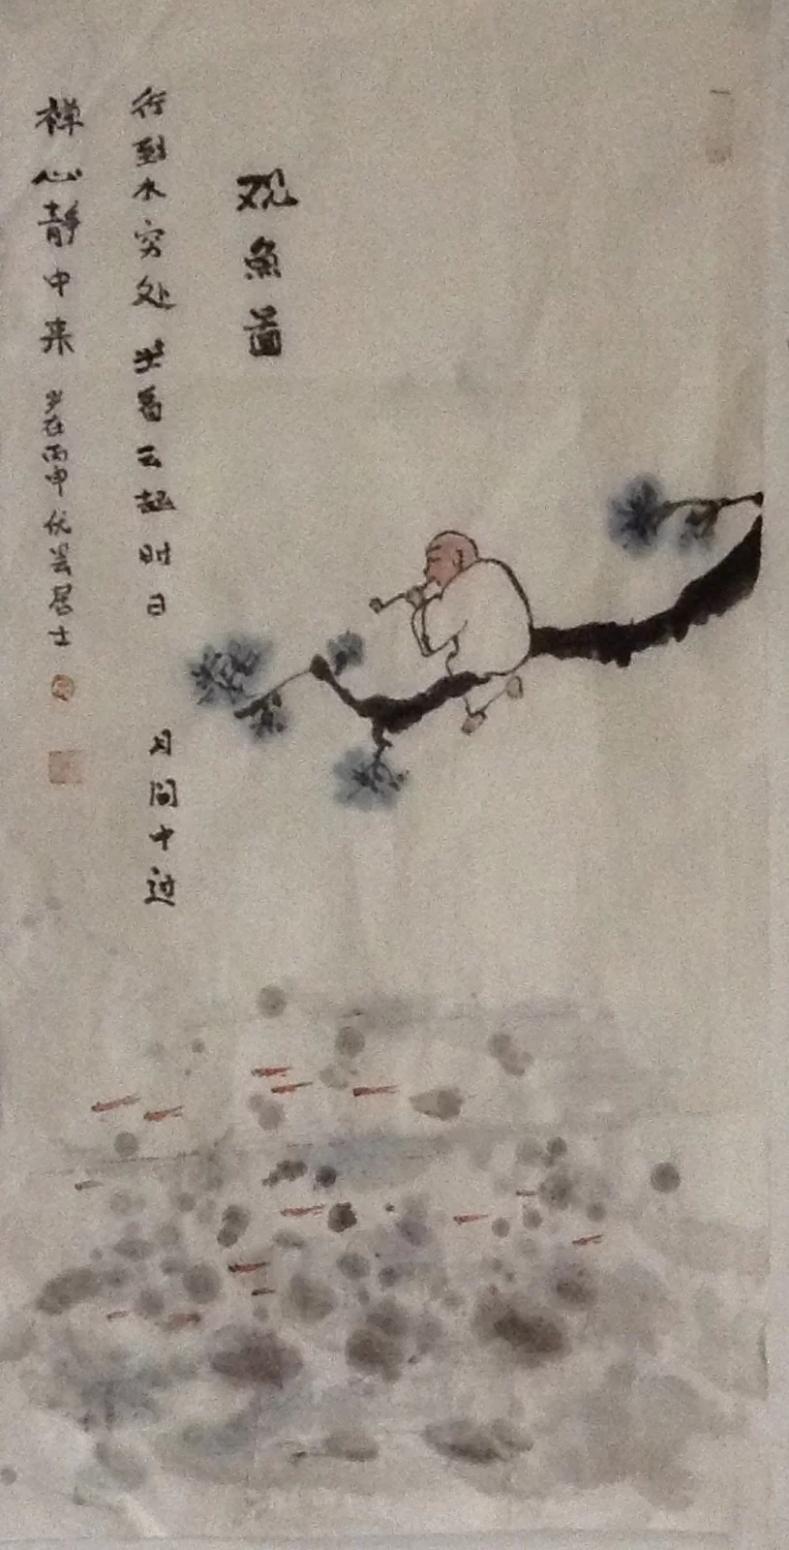 观鱼图
行到水穷处坐看云起时日月间中过
禅心静中来岁在丙申伏居士